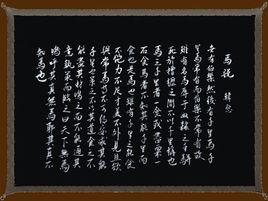 馬説 韓愈
世有伯樂然後有千里馬千
里馬常有而伯樂不常有故
雖有名馬辱于奴隸人之手駢
死於槽櫪之間不以千里稱也
馬之千里者一食或盡粟一
石食馬者不知其能千里而
食也是馬也雖有千里之能食
不飽力不足才美不外見且欲
與常馬等不可得安求其能
千里也策之不以其道食之不
能盡其材鳴之而不能通其
意執策而臨之曰天下無馬
嗚呼其真無馬耶其真不
知馬也